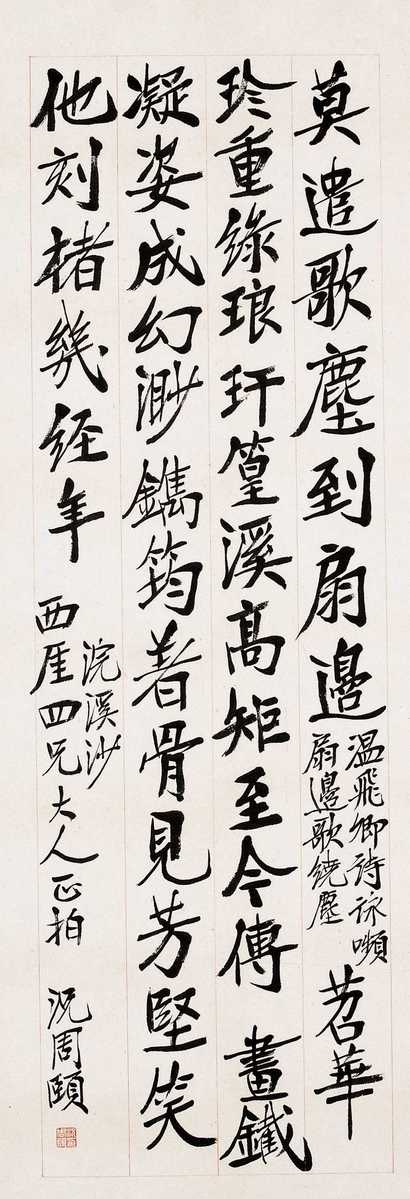 莫遣歌塵到扇邊
温飛卿詩詠嚬
扇邊歌繞塵
苕華
珍重綠琅玕篁溪高矩至今傳 畫鐵
凝姿成幻渺鐫筠着骨見芳堅笑
他刻楮幾經年
浣溪沙
西厓四兄大人正拍 況周頤